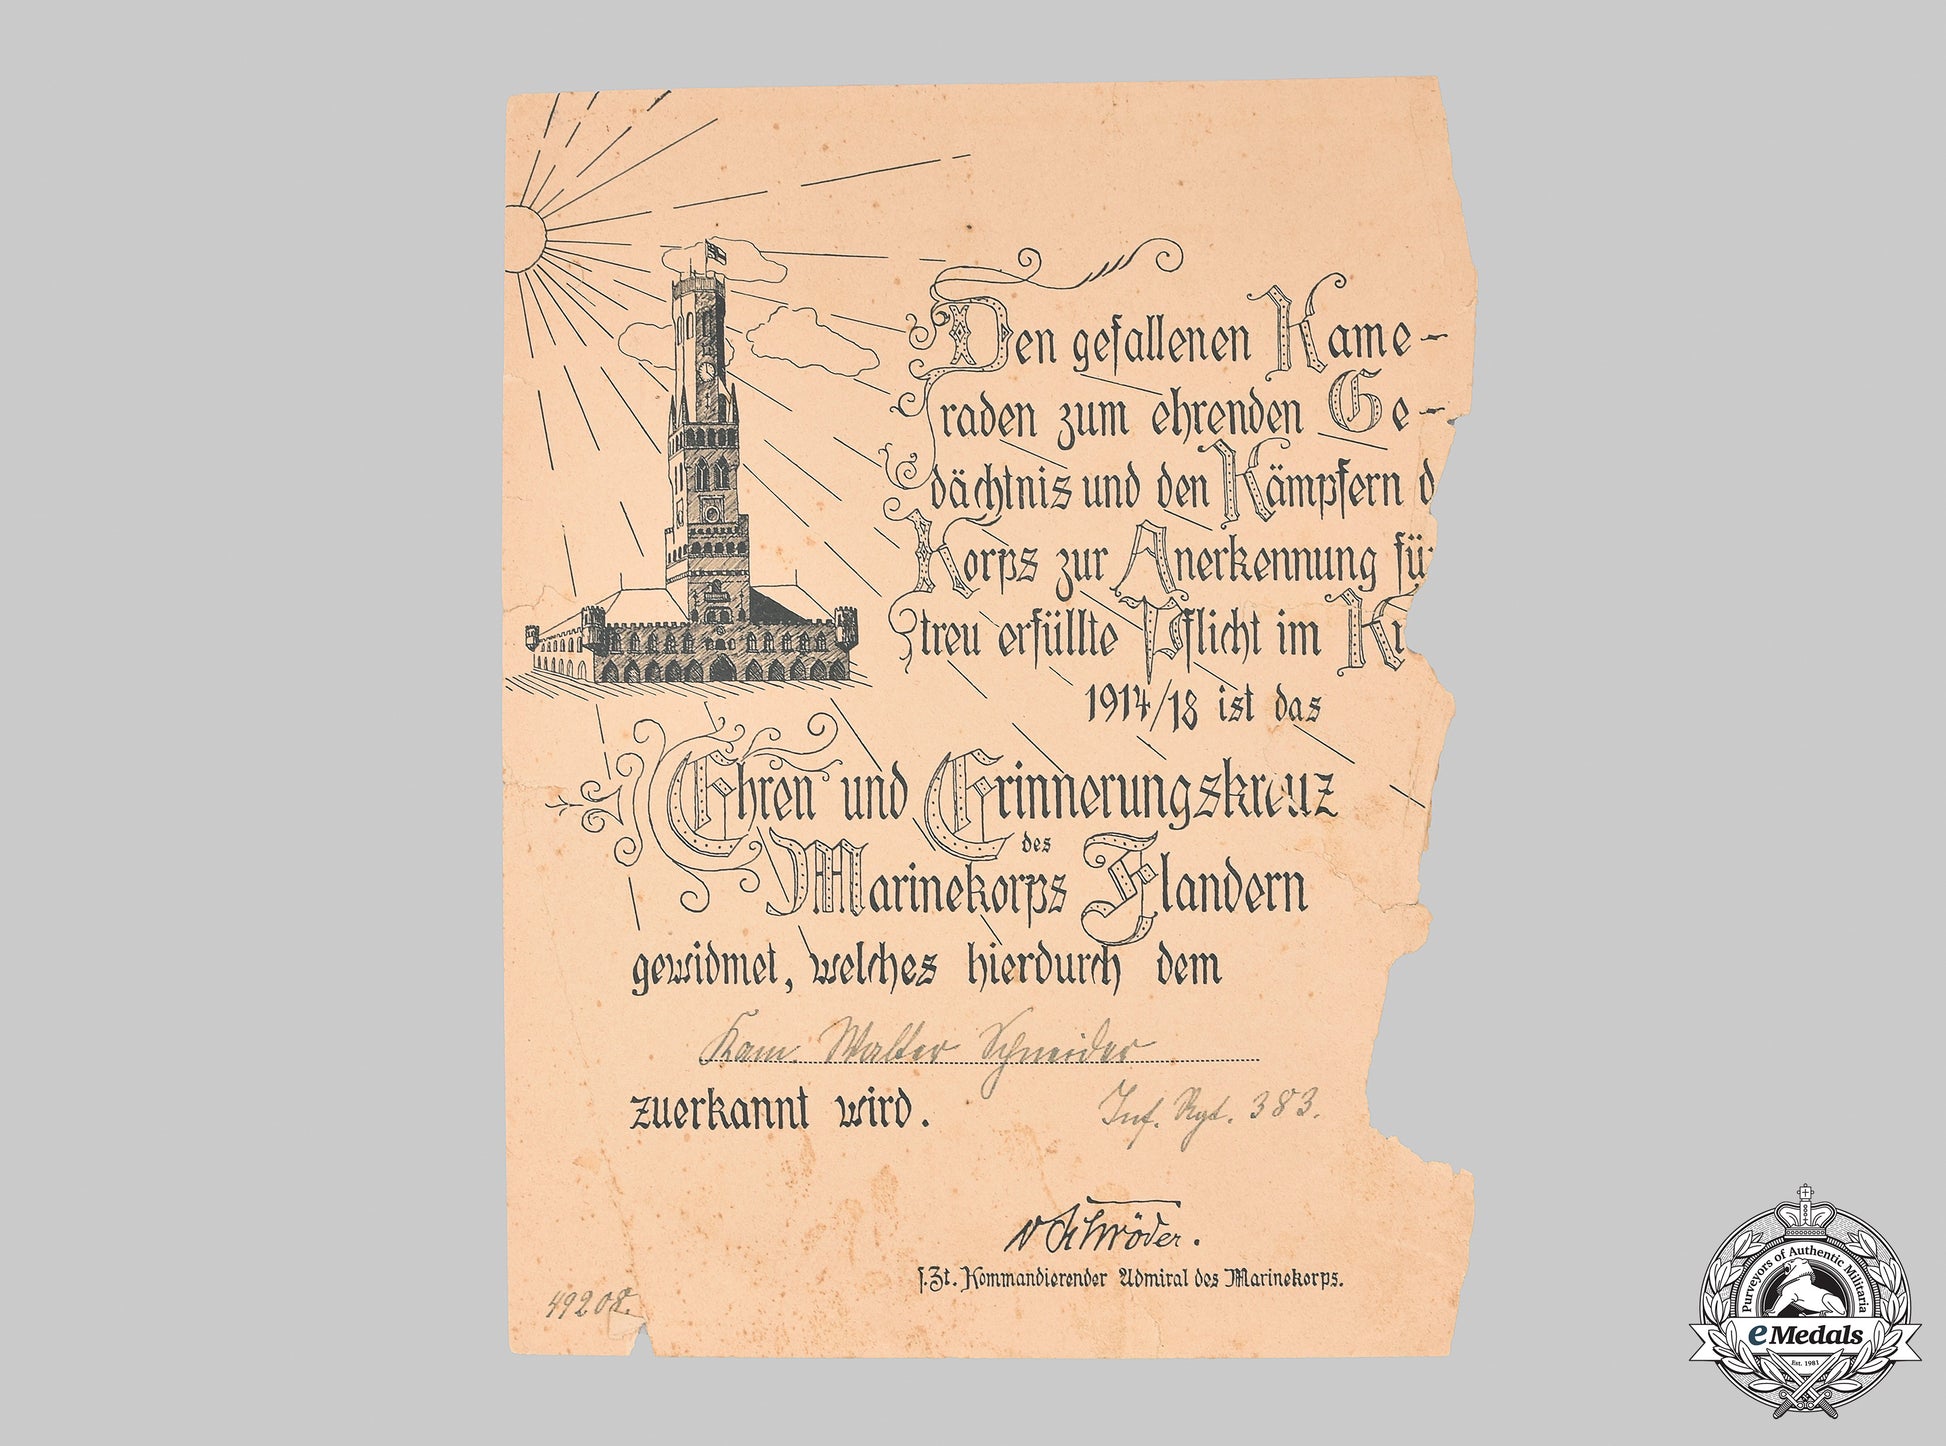 Den gefallenen Kame-
raden zum ehrenden Ge-
dächtnis und den Kämpfern d
Korps zur Anerkennung für
treu erfüllte Pflicht im Kr
1914/18 ist das
Ehren und Erinnerungskreuz
des
Marinekorps Flandern
gewidmet, welches hierdurch dem
Kam. Walter Schneider
zuerkannt wird.
Inf. Rgt. 383.
v Schröder.
s. Zt. Kommandierender Admiral des Marinekorps.
49208.
Purveyors of Authentic Militaria
eMedals
Est. 1981